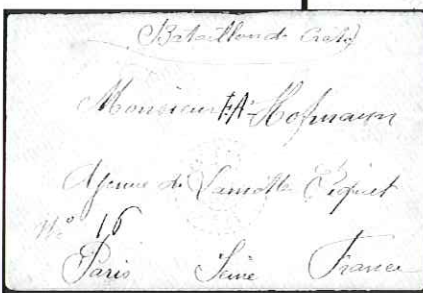 Bataillon de Crète
Monsieur FA. Hofmann
Avenue de Lamotte Piquet
N° 16
Paris Seine France